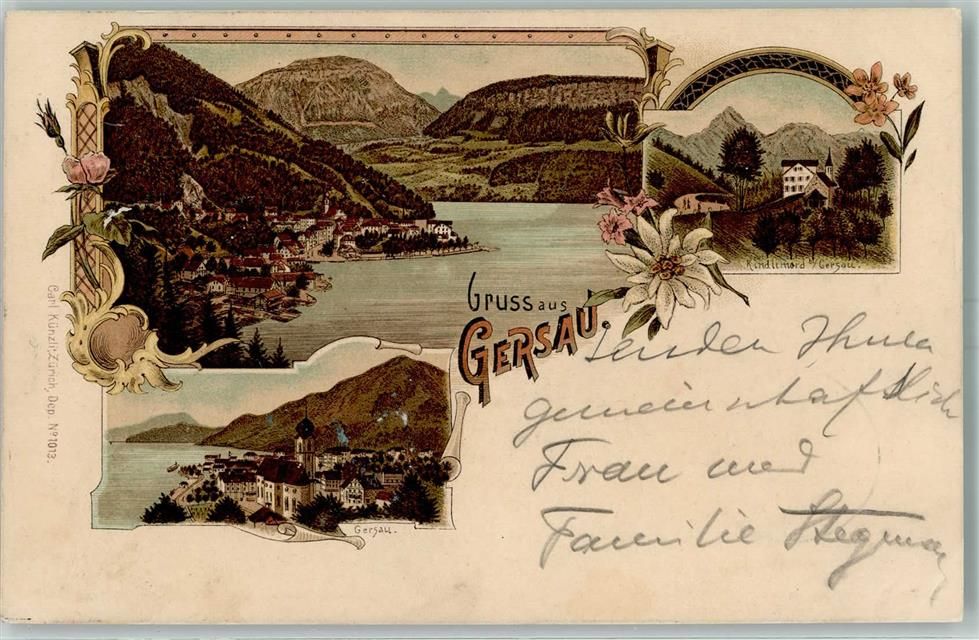 Kindlimord b/Gersau.
Gruss aus
GERSAU.
Senden Ihnen
gemeinschaftlich
Frau und
Familie Stegman
Gersau.
Carl Künzli-Zürich, Dep. No 1013.